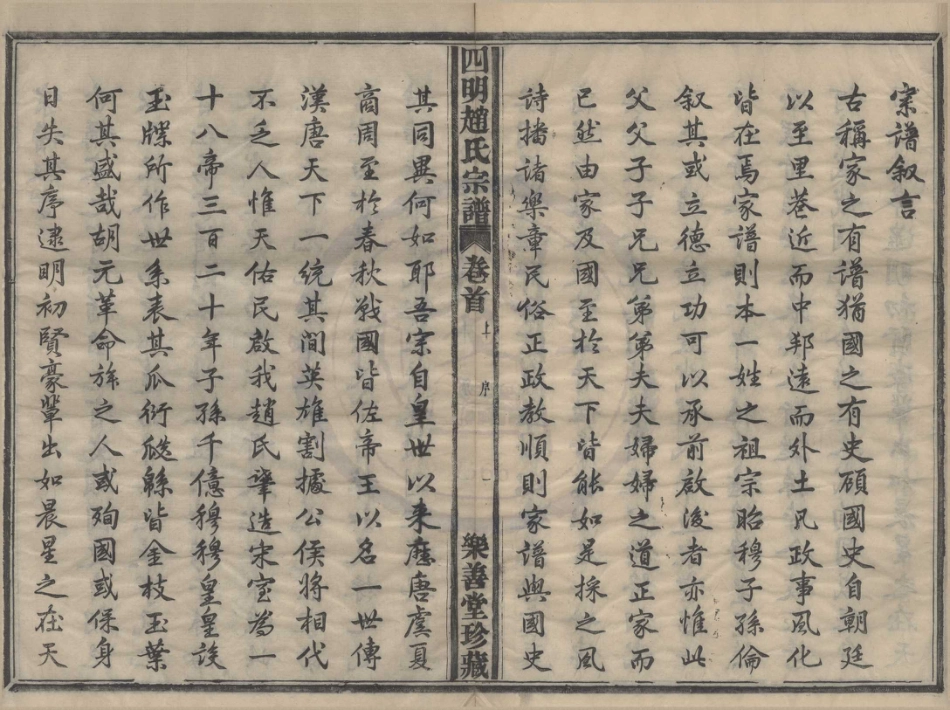 宗譜叙言
古稱家之有譜猶國之有史顧國史自朝廷
以至里巷近而中邦遠而外土凡政事風化
皆在焉家譜則本一姓之祖宗昭穆子孫倫
叙其或立德立功可以承前啟後者亦惟此
父父子子兄兄弟弟夫夫婦婦之道正家而
已然由家及國至於天下皆能如是採之風
詩播諸樂章民俗正政教順則家譜與國史
四明趙氏宗譜 卷首 上 序 一 樂善堂珍藏
其同異何如耶吾宗自皇世以来歷唐虞夏
商周至於春秋戰國皆佐帝王以名一世傳
漢唐天下一統其間英雄割據公侯將相代
不乏人惟天佑民啟我趙氏肇造宋室為一
十八帝三百二十年子孫千億穆穆皇皇談
玉牒所作世系表其瓜衍瓞緜皆金枝玉葉
何其盛哉胡元革命族之人或殉國或保身
日失其序逮明初賢豪輩出如晨星之在天